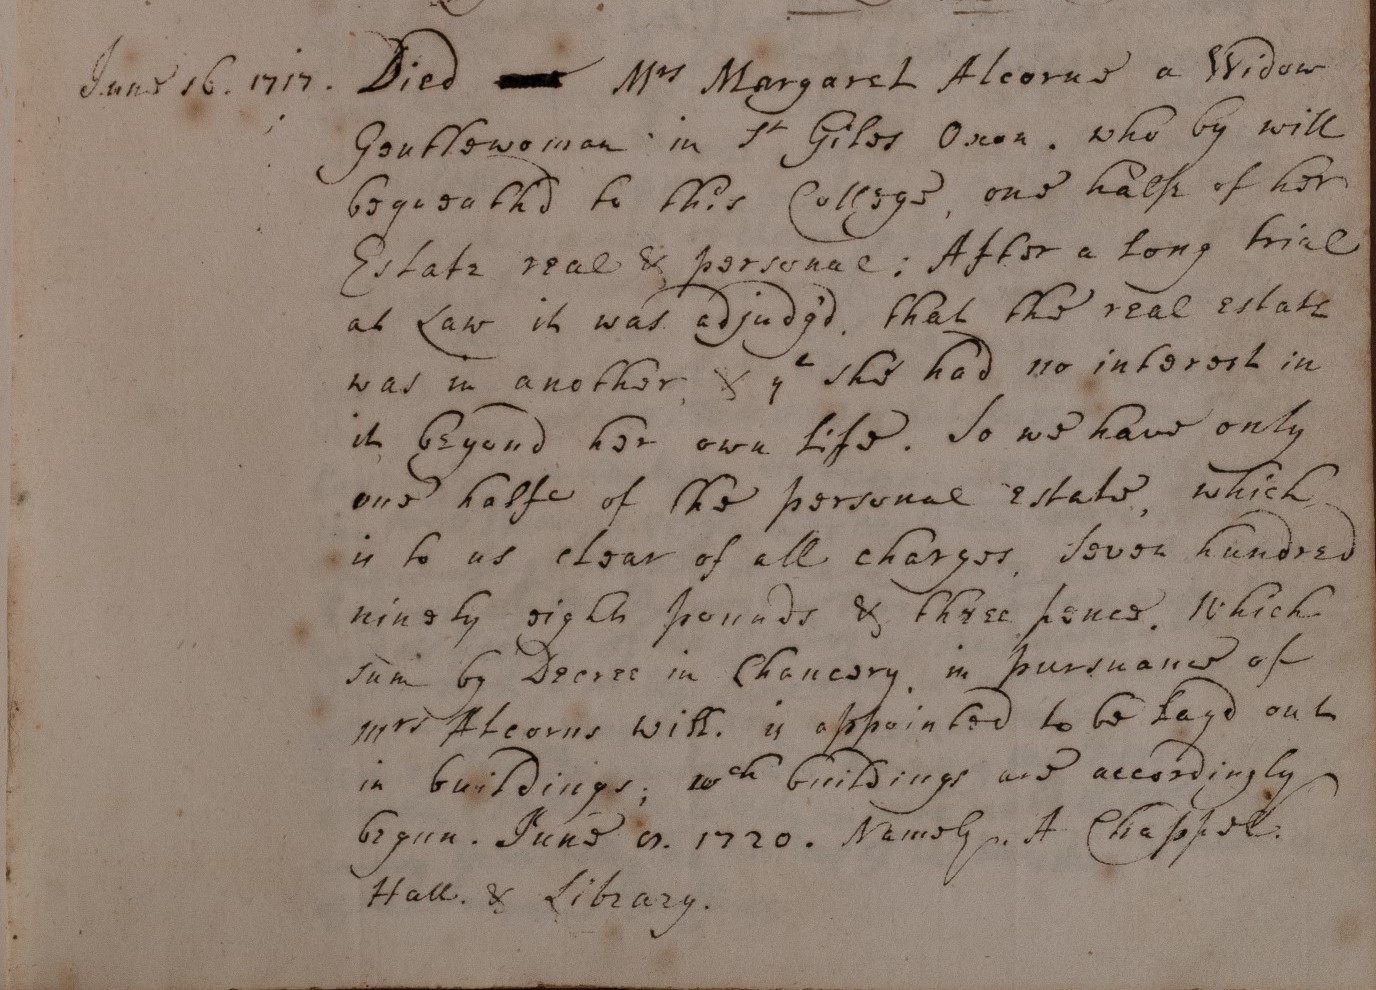 June 16. 1717. Died Mrs Margaret Alcorne a Widow
Gentlewoman in St Giles Oxon. who by will
bequeath'd to this College, one halfe of her
Estate real & personal: After a long trial
at Law it was adjudg'd, that the real estate
was in another, & yt she had no interest in
it beyond her own life. So we have only
one halfe of the personal estate, which
is to us clear of all charges, Seven hundred
ninety eight pounds & three pence. Which
sum by Decree in Chancery, in pursuance of
Mrs Alcorns will. is appointed to be layd out
in buildings; wch buildings are accordingly
begun. June 1720. Namely. A Chappel.
Hall. & Library.